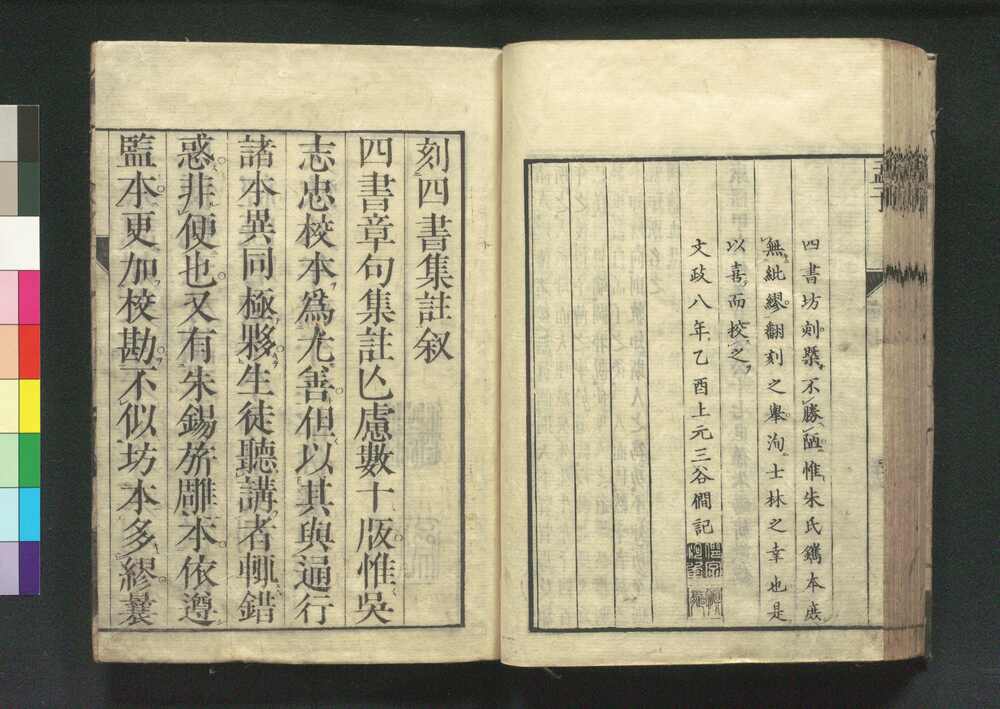 孟子
四書坊刻槩不勝陋惟朱氏鐫本庶
無紕繆翻刻之舉洵士林之幸也是
以喜而挍之
文政八年乙酉上元三谷僩記
刻四書集註叙
四書章句集註亾慮數十版惟吳
志忠校本爲尤善但以其與通行
諸本異同極夥生徒聽講者輒錯
惑非便也又有朱錫旂雕本依遵
監本更加校勘不似坊本多繆曩